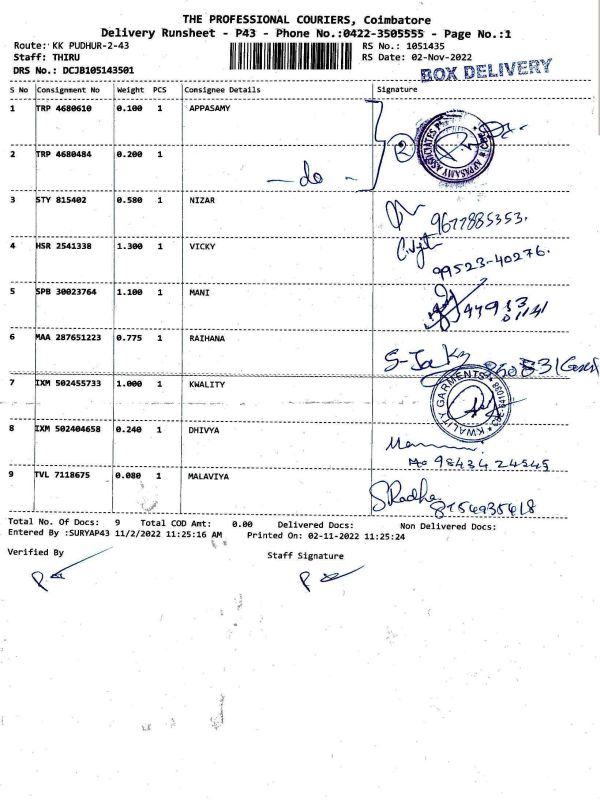 THE PROFESSIONAL COURIERS, Coimbatore
Delivery Runsheet - P43 - Phone No.:0422-3505555 - Page No.:1
Route: KK PUDHUR-2-43 RS No.: 1051435
Staff: THIRU RS Date: 02-Nov-2022
DRS No.: DCJB105143501
BOX DELIVERY
S No Consignment No Weight PCS Consignee Details Signature
1 TRP 4680610 0.100 1 APPASAMY
2 TRP 4680484 0.200 1
- do -
2
APPASAMY ASSOCIATES
3 STY 815402 0.580 1 NIZAR
9677885353.
4 HSR 2541338 1.300 1 VICKY
99523-40276.
5 SPB 30023764 1.100 1 MANI
6 MAA 287651223 0.775 1 RAIHANA
7 IXM 502455733 1.000 1 KWALITY
KWALITY GARMENTS
8 IXM 502404658 0.240 1 DHIVYA
9843424545
9 TVL 7118675 0.080 1 MALAVIYA
S Radha
Total No. Of Docs: 9 Total COD Amt: 0.00 Delivered Docs: Non Delivered Docs:
Entered By :SURYAP43 11/2/2022 11:25:16 AM Printed On: 02-11-2022 11:25:24
Verified By Staff Signature